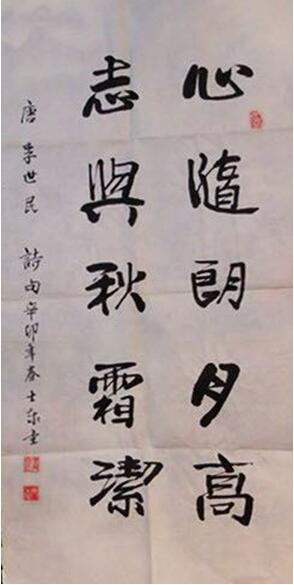 心隨朗月高
志與秋霜潔
唐李世民詩句辛卯年春士東書